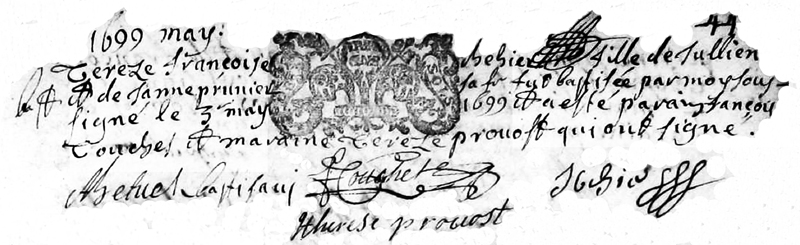 1699 may.
44
Tereze françoise chehier fille de Jullien
et de Janne prunier sa fe fut baptisée par moy sous-
signé le 3e may 1699 et a esté parain françois
Touches et maraine Tereze provost qui ont signé.
Touchets
Jchie
therese provost